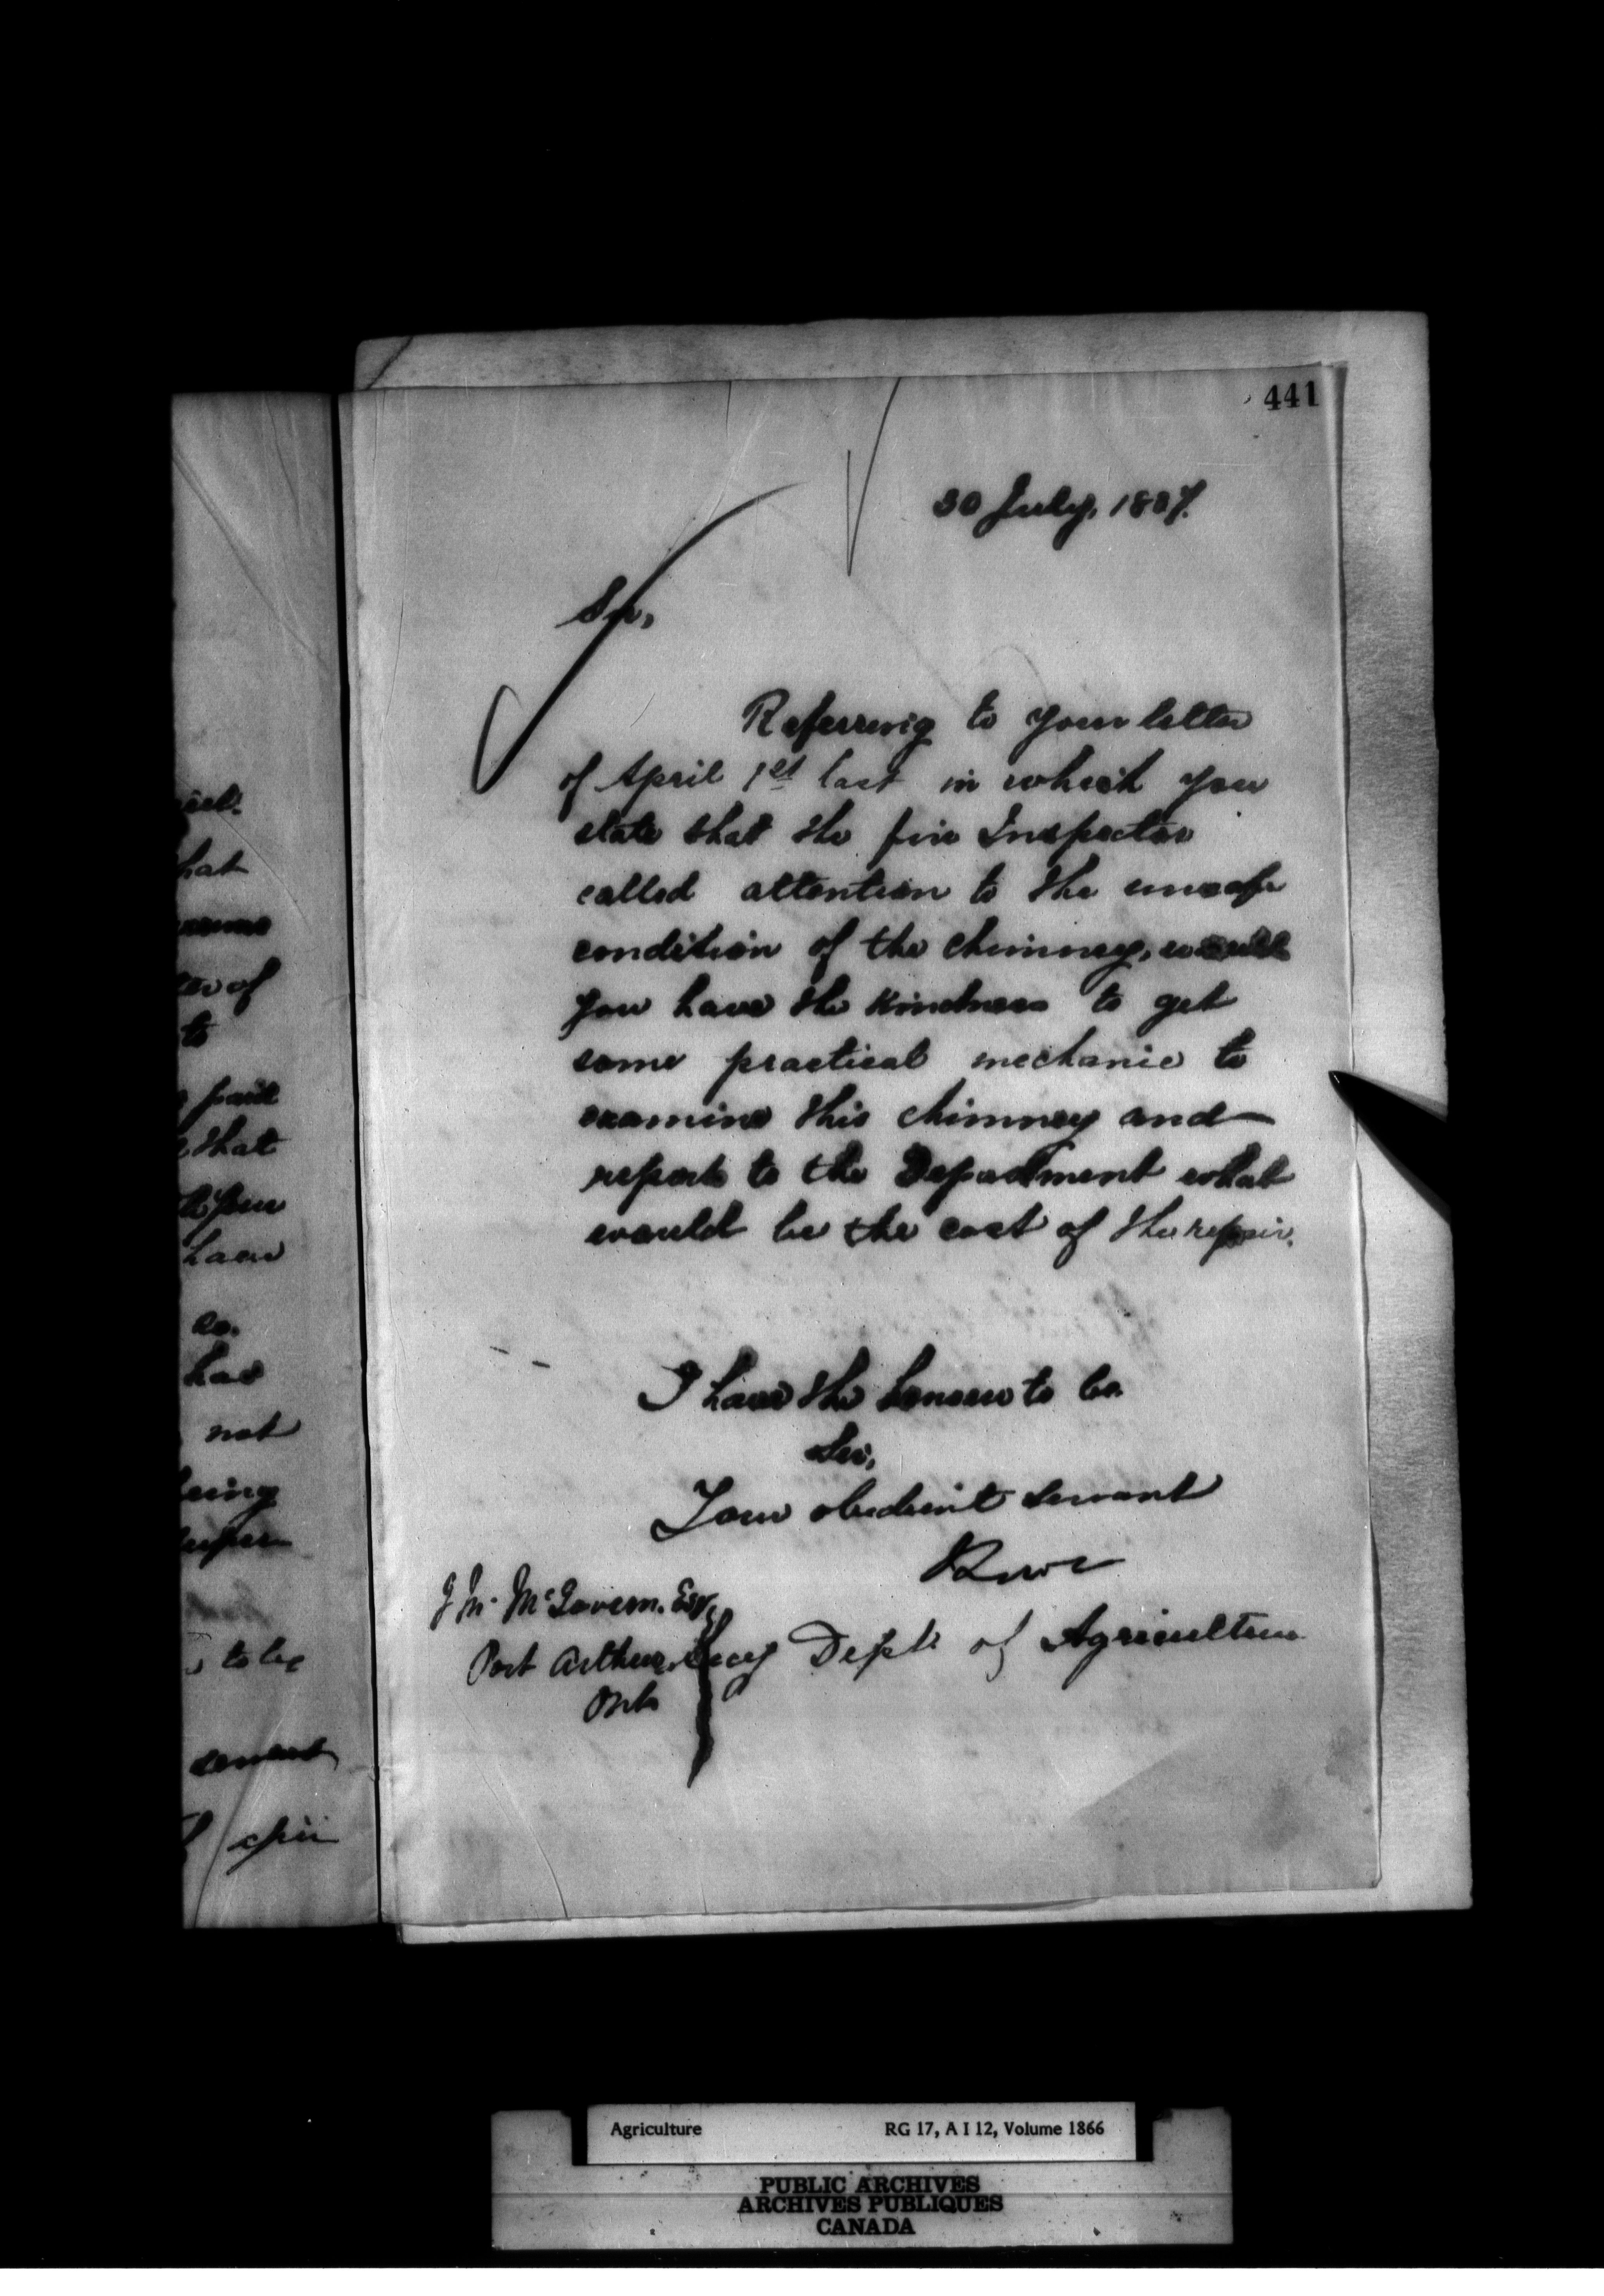 441
30 July, 1887.
Sir,
Referring to your letter
of April 1st last in which you
state that the fire Inspector
called attention to the unsafe
condition of the chimney, would
you have the kindness to get
some practical mechanic to
examine this chimney and
report to the Department what
would be the cost of the repair.
I have the honour to be
Sir,
Your obedient servant
J. M. McGovern. Esq.
Port Arthur
Ont
Secy Dept of Agriculture
hat
of
to
paid
that
have
so.
has
not
being
to be
Agriculture RG 17, A I 12, Volume 1866
PUBLIC ARCHIVES
ARCHIVES PUBLIQUES
CANADA